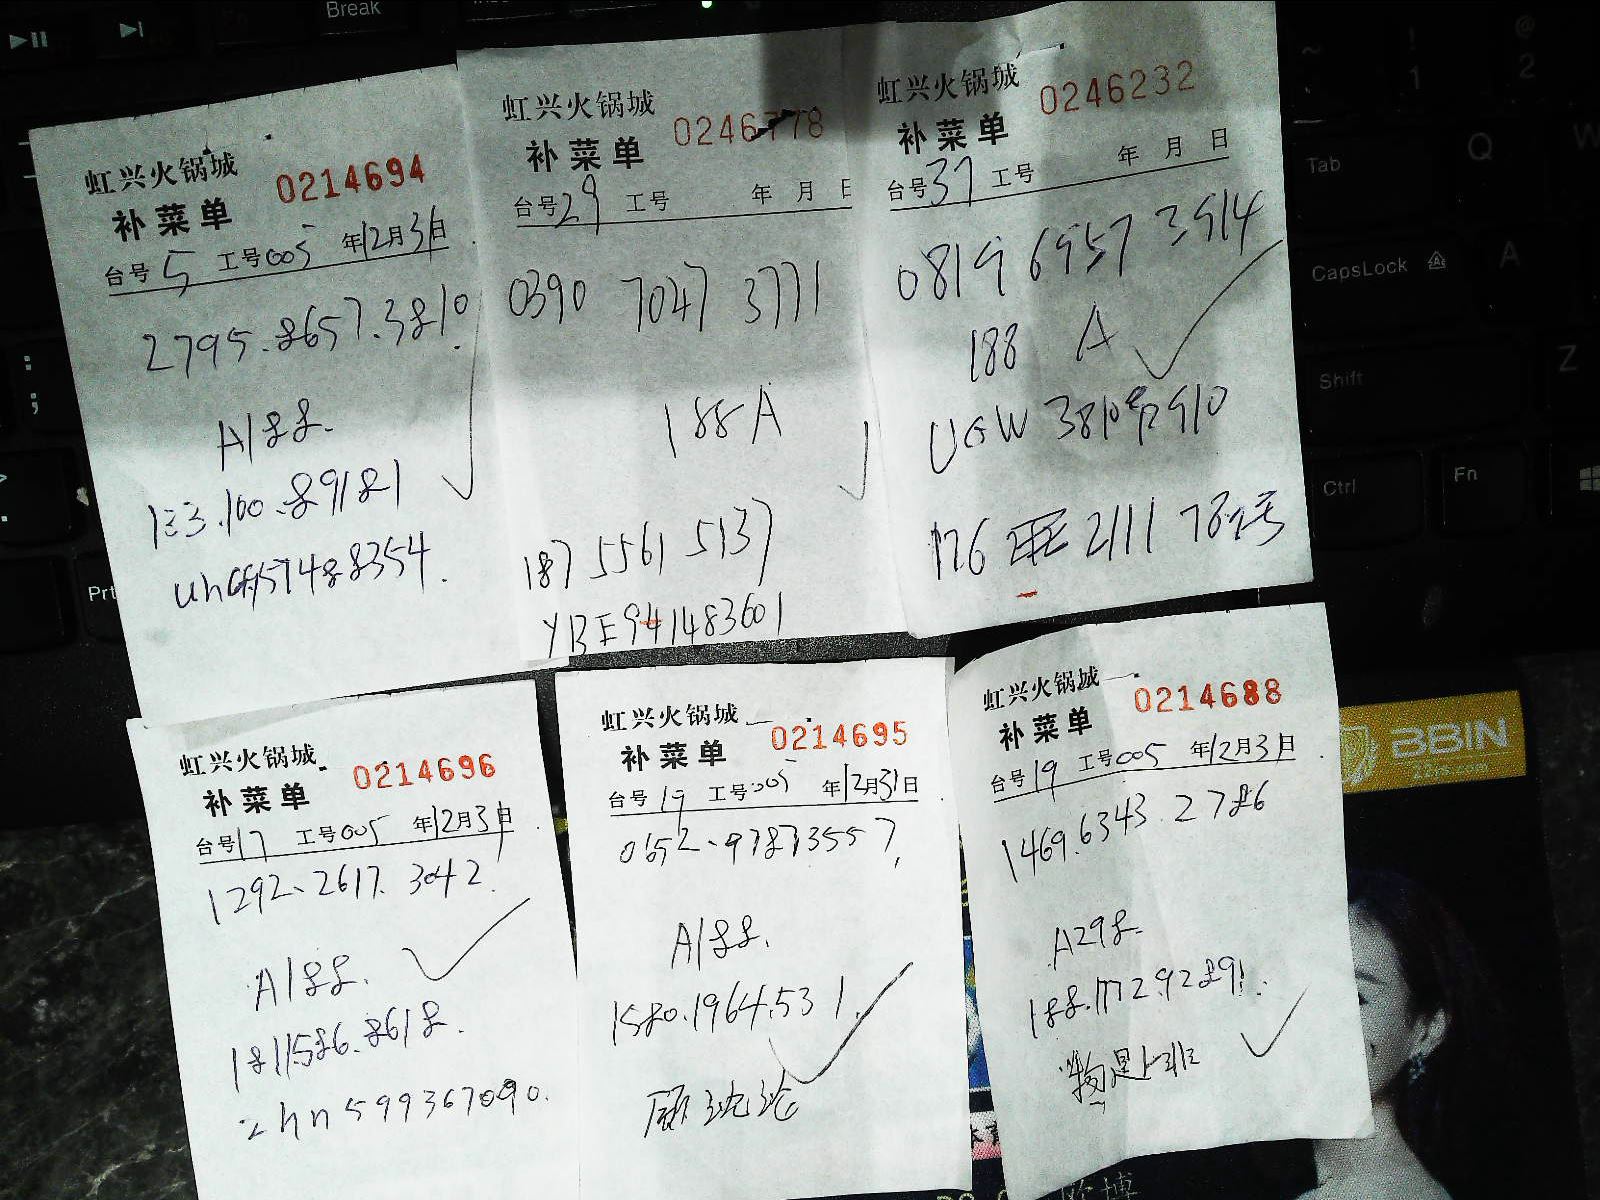 Break
虹兴火锅城
补菜单 0214694
台号 5 工号005 年12月31日
2795.8657.3810
A188.
133.100.89181
虹兴火锅城
补菜单 0246778
台号29 工号 年 月 日
0390 7047 3771
188A
187 5561 5137
YBE941483601
虹兴火锅城
补菜单 0246232
台号37 工号 年 月 日
0819 6957 3914
188 A
UGW
176 2111
虹兴火锅城
补菜单 0214696
台号17 工号005 年12月31日
1292.2617.3042.
A188.
181 1586.8618.
zhn599367090.
虹兴火锅城
补菜单 0214695
台号19 工号005 年12月31日
0652.97873557.
A188.
1580.1964.531.
虹兴火锅城
补菜单 0214688
台号19 工号005 年12月31日
1469.6343.2786
A298.
188.1772.9289
Tab
Q
CapsLock
A
Shift
Z
Ctrl
Fn
Prt
~
!
1
@
2
BBIN